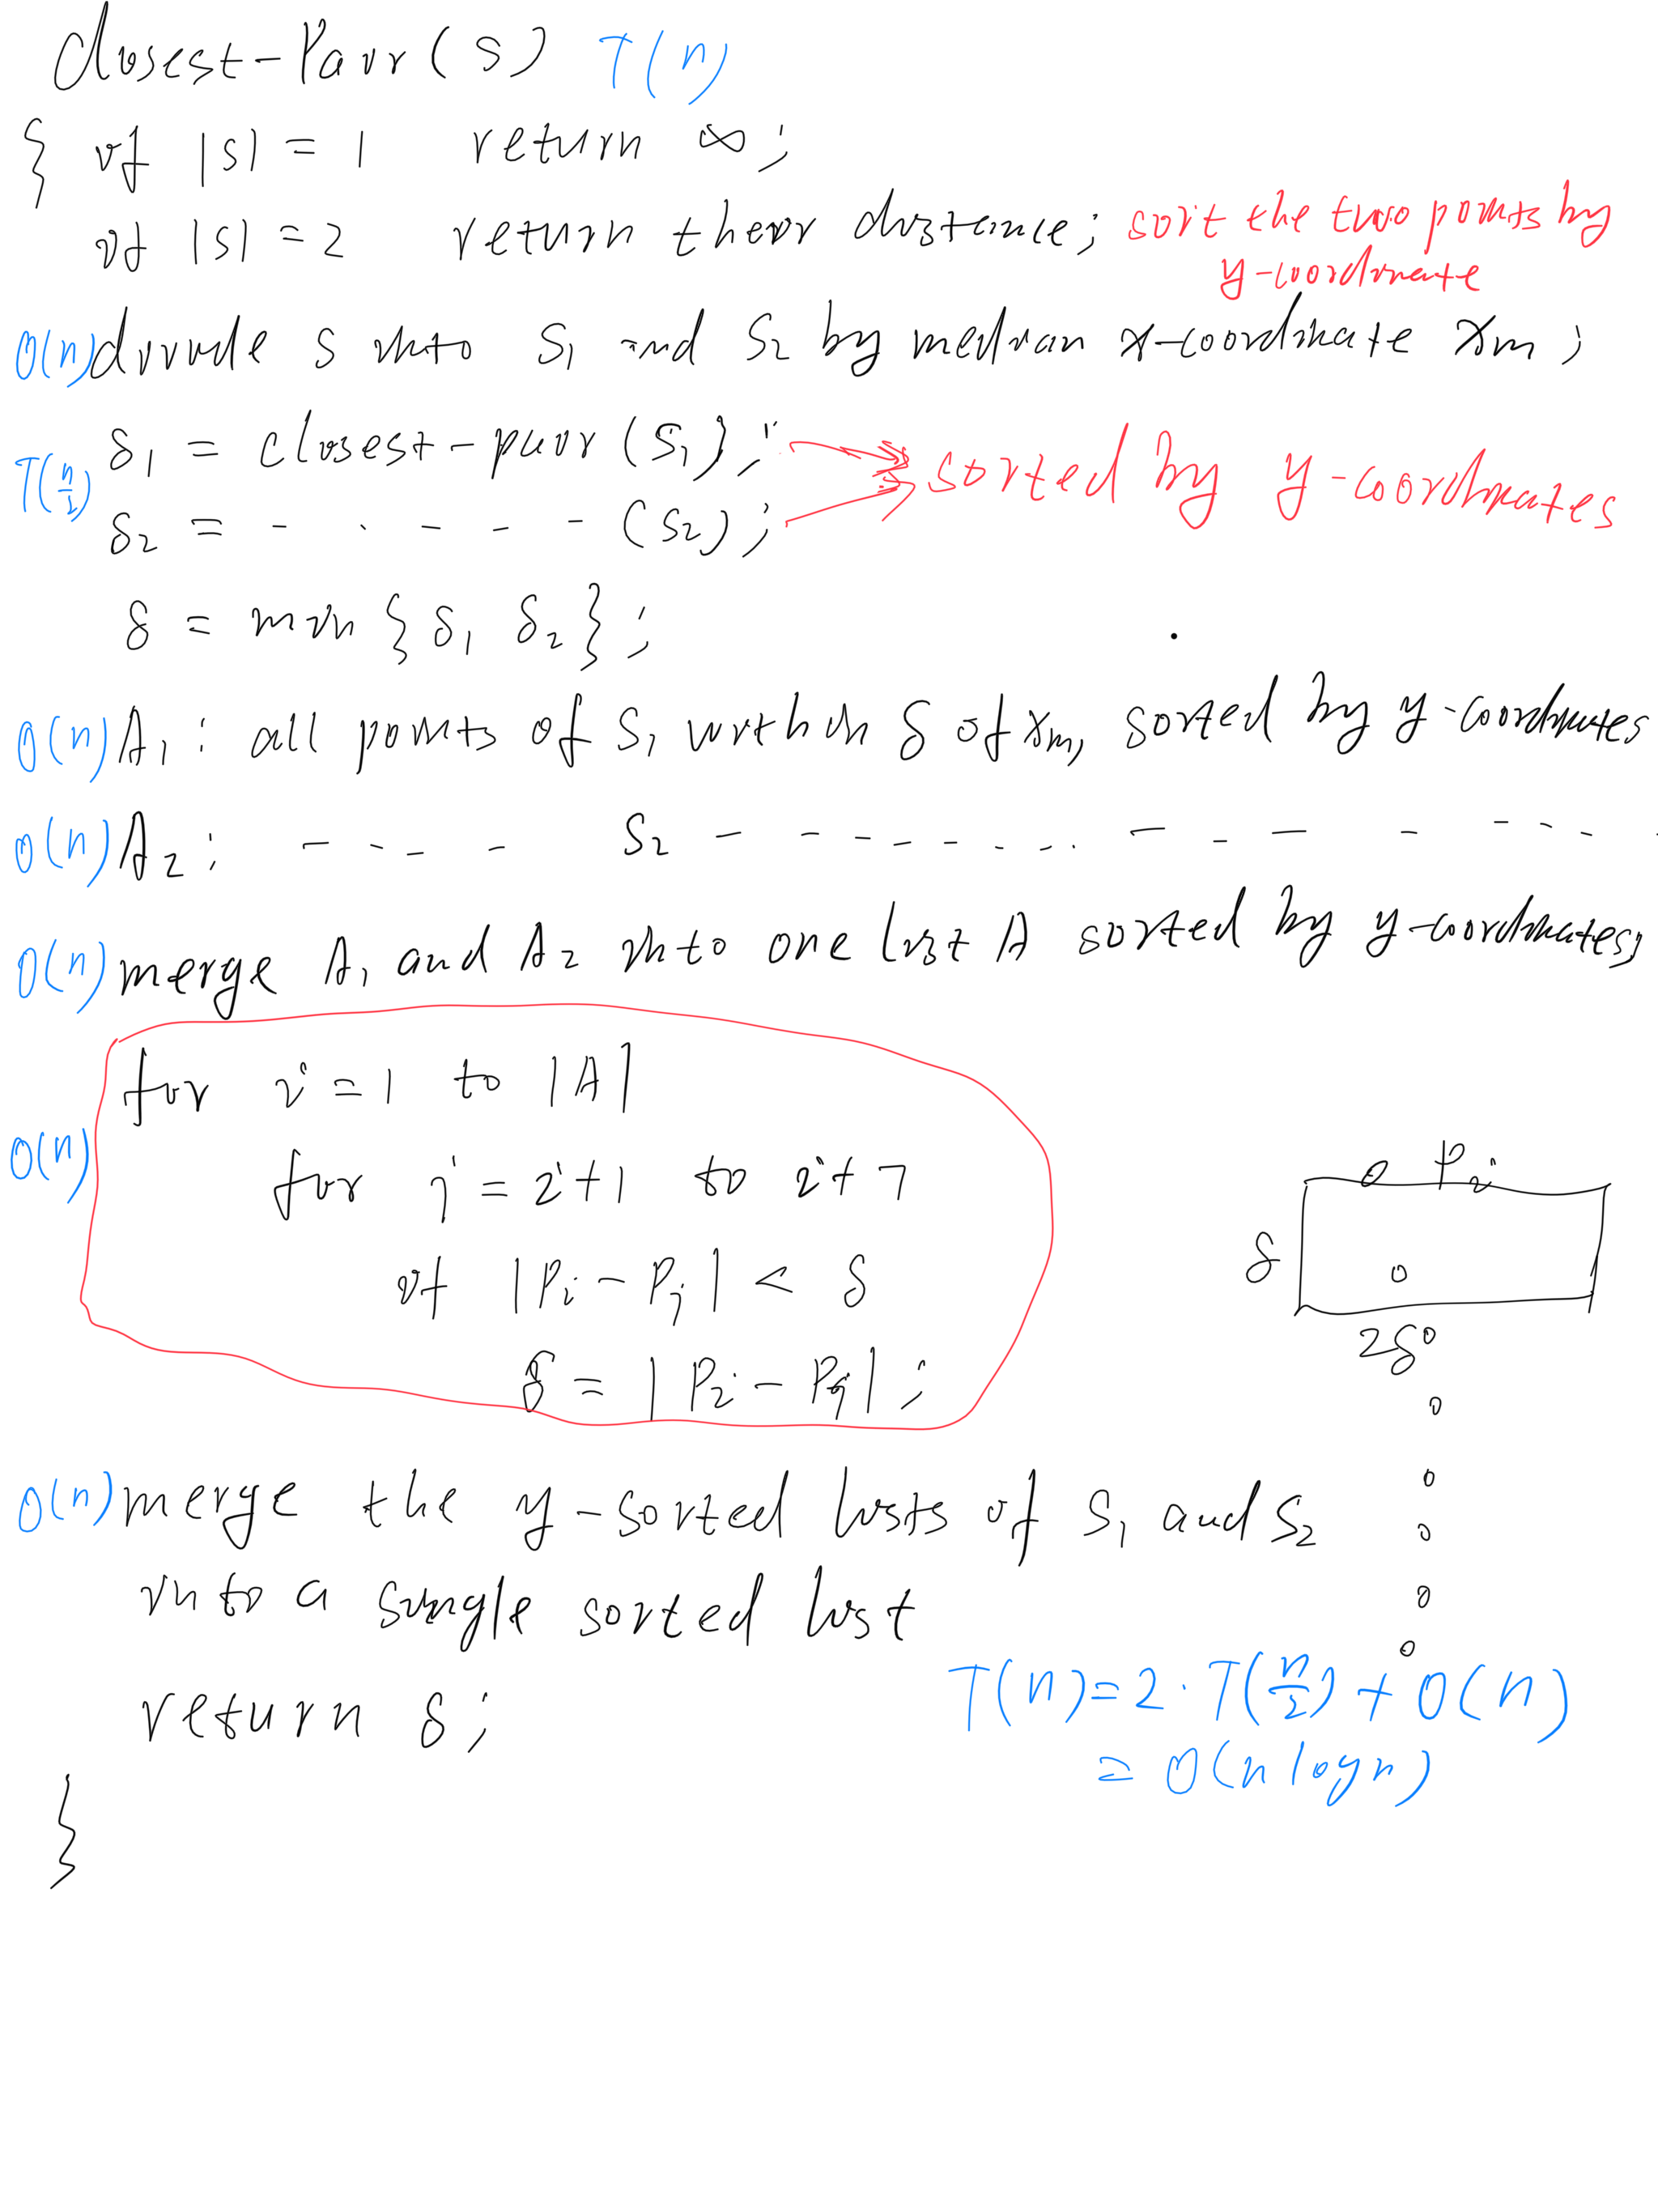 Closest-Pair(S) T(n)
{ if |S| = 1 return ∞;
if |S| = 2 return their distance; sort the two points by
y-coordinate
O(n) divide S into S₁ and S₂ by median x-coordinate xₘ;
δ₁ = closest-pair(S₁);
T(n/2) sorted by y-coordinates
δ₂ = - - - - - (S₂);
δ = min { δ₁ δ₂ };
O(n) A₁ : all points of S₁ within δ of xₘ, sorted by y-coordinates
O(n) A₂ : - - - - S₂ - - - - - - - - - - - - - - -
O(n) merge A₁ and A₂ into one list A sorted by y-coordinates;
for i = 1 to |A|
O(n)
for j = i+1 to i+7
if |Pᵢ - Pⱼ| < δ
δ = |Pᵢ - Pⱼ|;
Pᵢ
δ
2δ
O(n) merge the y-sorted lists of S₁ and S₂
into a single sorted list
return δ;
T(n) = 2·T(n/2) + O(n)
= O(n log n)
}